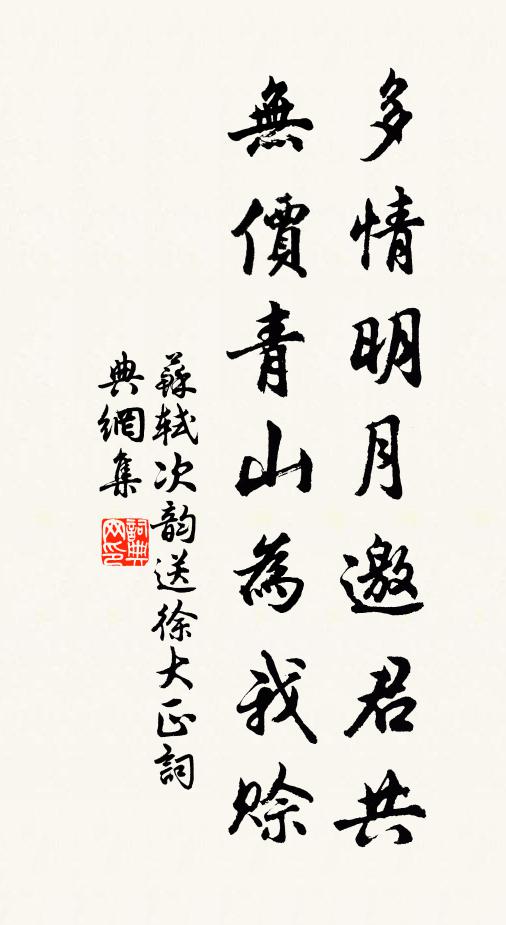 多情明月邀君共
無價青山為我賒
蘇軾次韵送徐大正詞
典網集
詞典網印